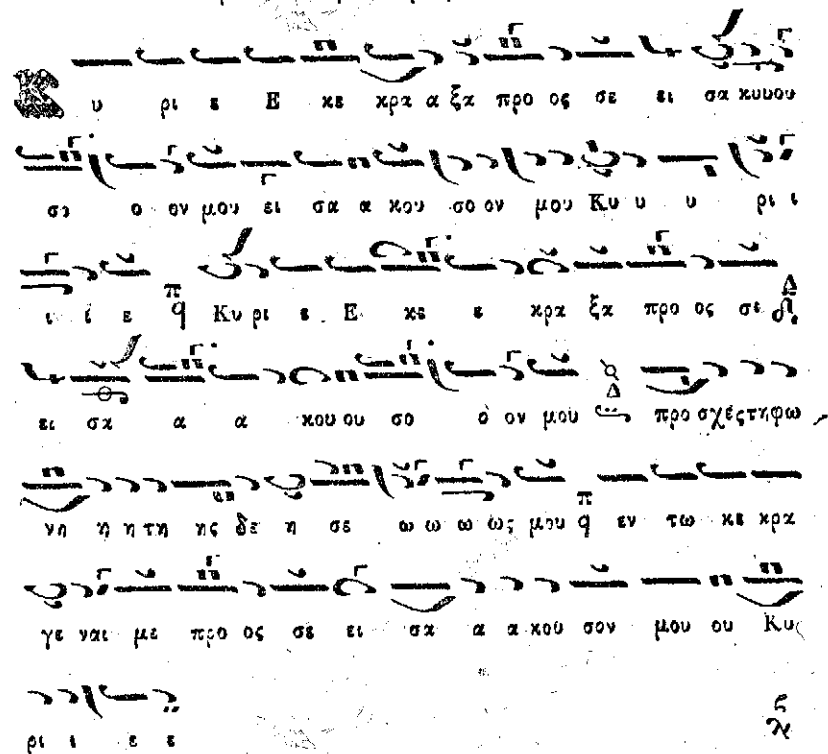 Κ υ ρι ε Ε κε κρα α ξα προ ος σε ει σα κυυου
σο ο ον μου ει σα α κου σο ον μου Κυ υ υ ρι ι
ι ι ε π q Κυ ρι ε Ε κε ε κρα ξα προ ος σε Δ
ει σα α α κου ου σο ο ον μου Δ προ σχέςτηφω
νη η η τη ης δε η σε ω ω ω ως μου π q εν τω κε κρα
γε ναι με προ ος σε ει σα α α κου σον μου ου Κυ
ρι ι ε ε